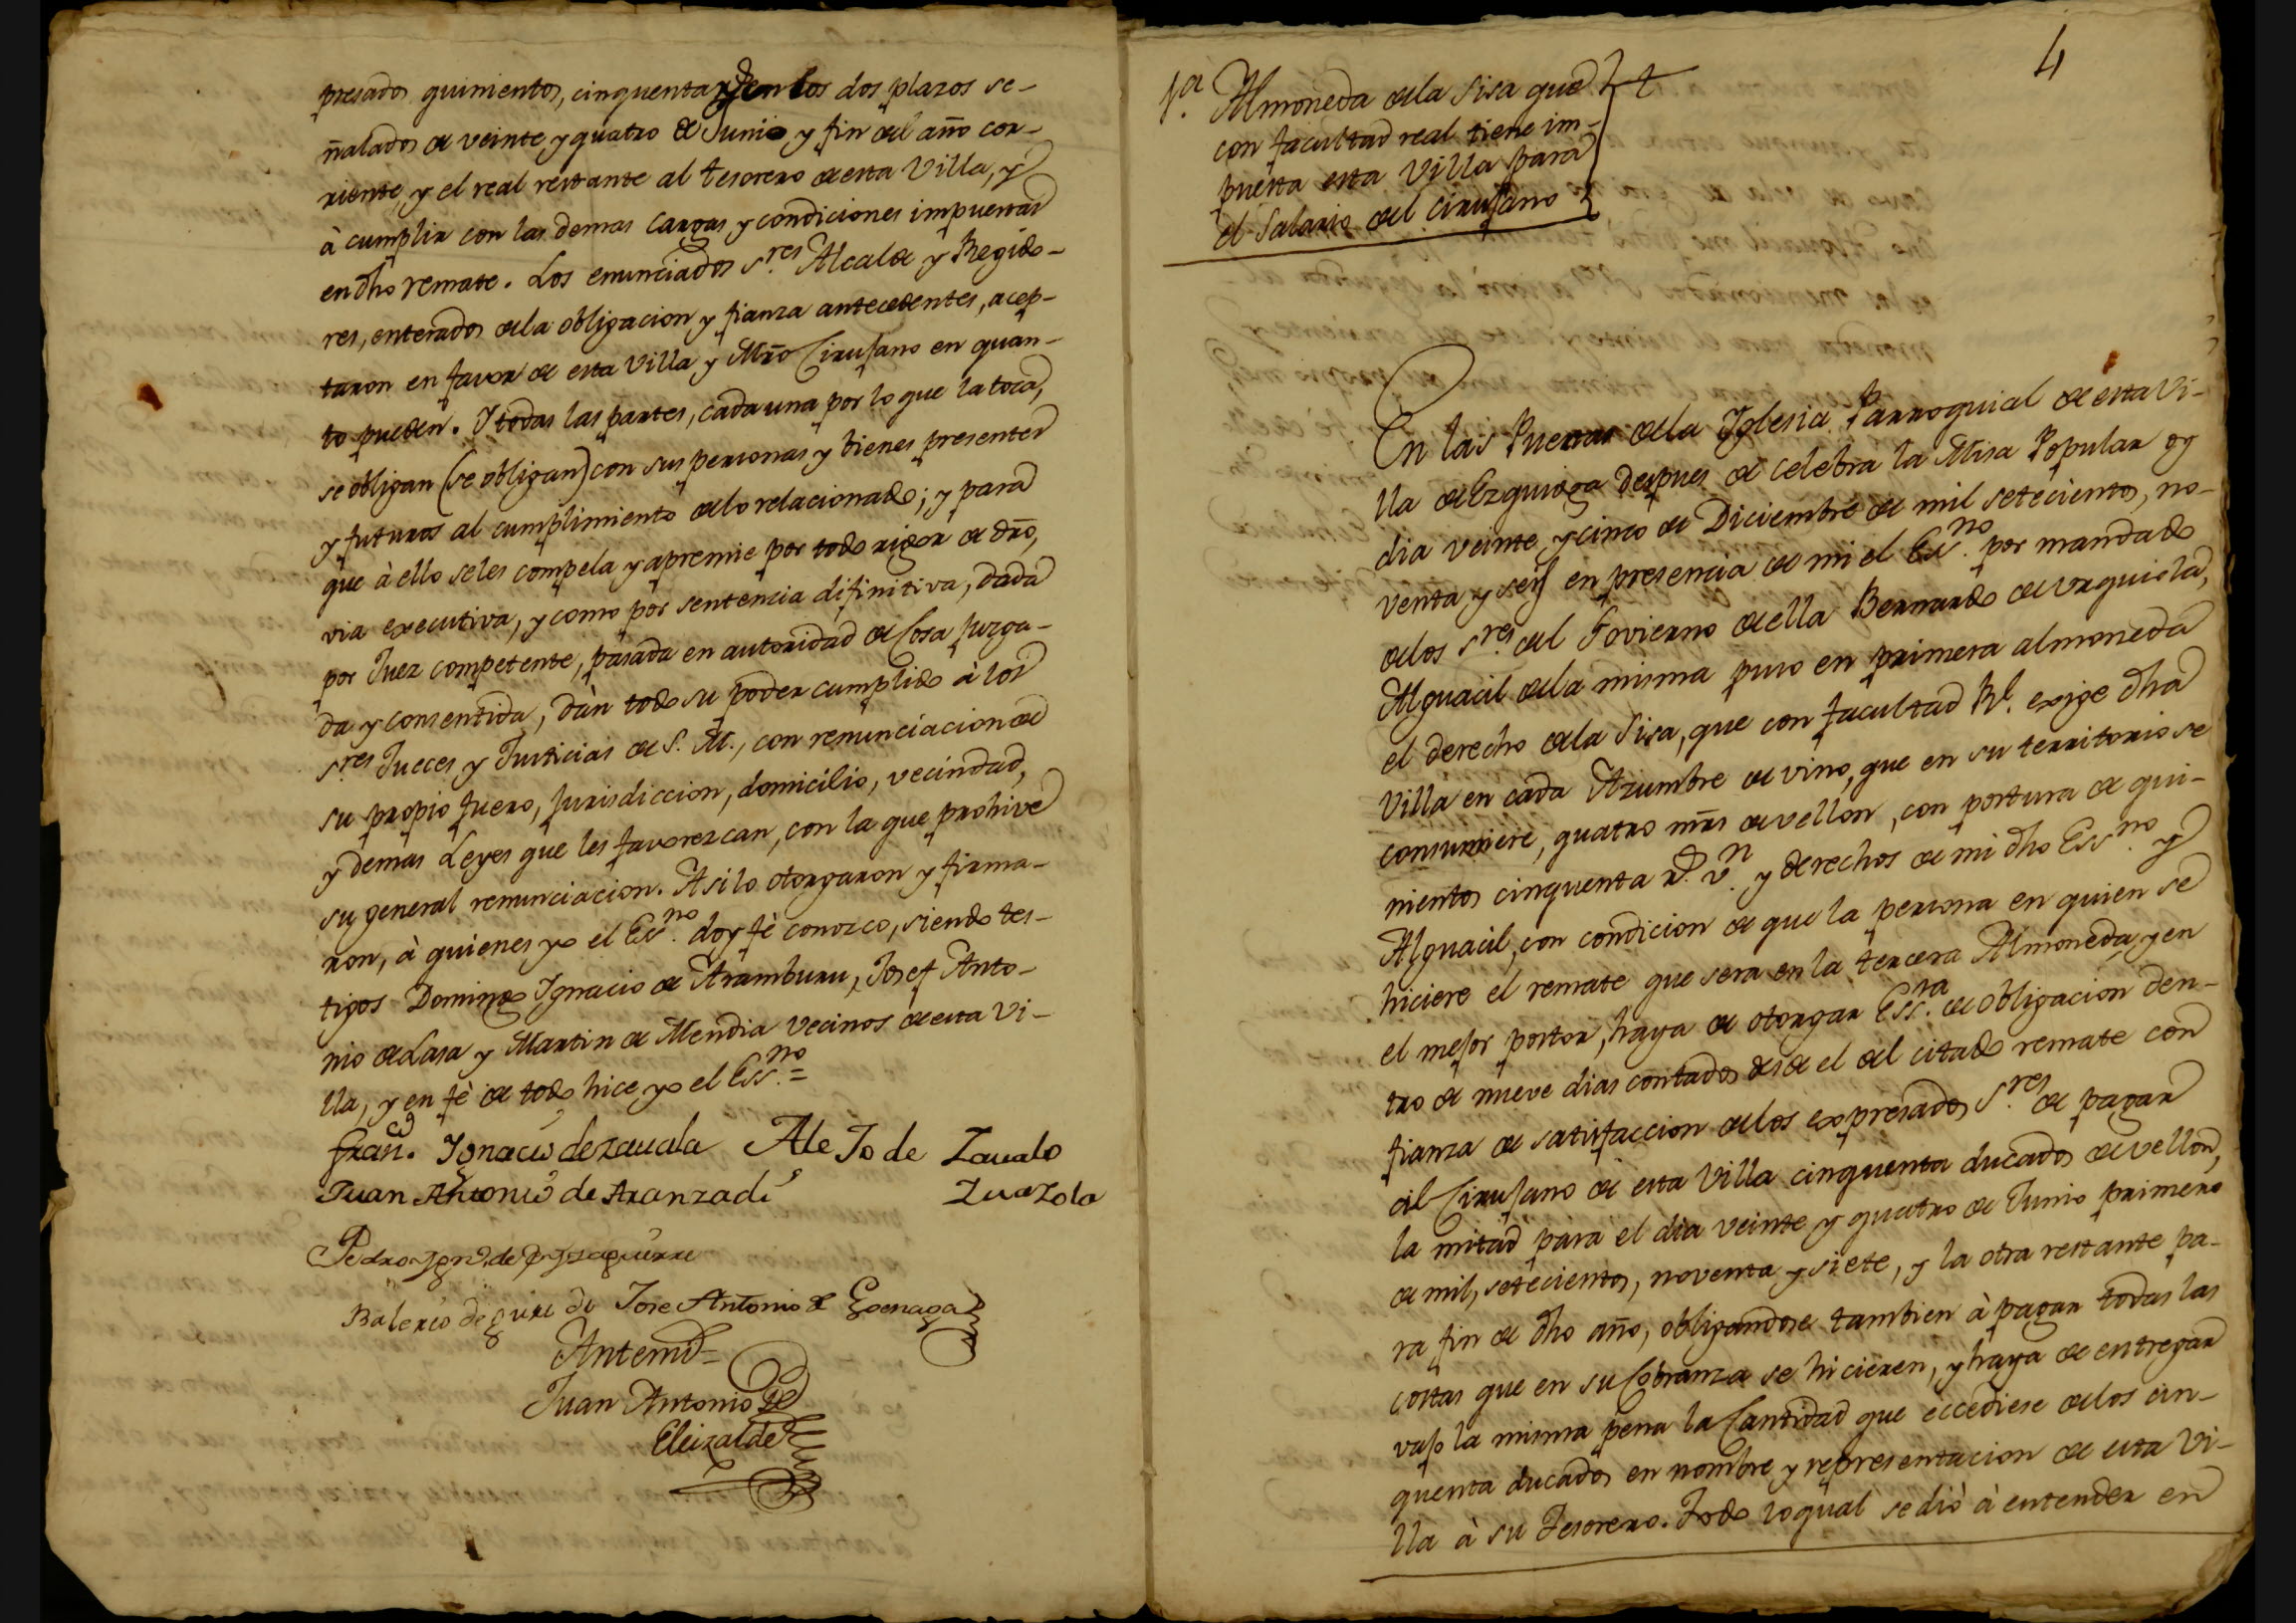 presados quinientos, cinquenta y en los dos plazos se-
ñalados de veinte y quatro de Junio y fin del año cor-
riente, y el real restante al tesorero de esta Villa, y
à cumplir con las demas cargas y condiciones impuestas
en dho remate. Los enunciados S.res Alcalde y Regido-
res, enterados de la obligacion y fianza antecedentes, acep-
taron en favor de esta Villa y Mro Cirujano en quan-
to pueden. Y todas las partes, cada una por lo que la toca,
se obligan (se obligan) con sus personas y bienes presentes
y futuros al cumplimiento de lo relacionado; y para
que à ello se les compela y apremie por todo rigor de dro,
via executiva, y como por sentencia difinitiva, dada
por Juez competente, pasada en autoridad de Cosa Juzga-
da y consentida, dàn todo su poder cumplido à los
S.res Jueces y Justicias de S. M., con renunciacion de
su propio fuero, Jurisdiccion, domicilio, vecindad,
y demas Leyes que les favorezcan, con la que prohive
su general renunciacion. Asi lo otorgaron y firma-
ron, à quienes yo el Ess.no doy fè conozco, siendo tes-
tigos Domingo Ignacio de Aramburu, Josef Anto-
nio de Lasa y Martin de Mendia vecinos de esta Vi-
lla, y en fè de todo hice yo el Ess.no =
Fran.co Ignacio de zauala Ale Jo de Zaualo
Juan Antonio de Aranzadi Zuazola
Pedro Ign.o de Yzaguirre
Balerio de Jose Antonio de Goenaga
Antemi =
Juan Antonio de
Eleizalde
4
1.a Almoneda de la Sisa que
con facultad real tiene im-
puesta esta Villa para
el Salario del Cirujano
En las Puertas de la Iglesia Parroquial de esta Vi-
lla de Ezquioga despues de celebra la Misa Popular oy
dia veinte y cinco de Diciembre de mil setecientos, no-
venta y seis en presencia de mi el Ess.no por mandado
de los S.res del Govierno de ella Bernardo de Urquiola,
Alguacil de la misma puso en primera almoneda
el derecho de la Sisa, que con facultad Rl. exige dha
Villa en cada Azumbre de vino, que en su territorio se
consumiere, quatro mrs de vellon, con postura de qui-
nientos cinquenta r.s v.n y derechos de mi dho Ess.no y
Alguacil, con condicion de que la persona en quien se
hiciere el remate que sera en la tercera Almoneda, y en
el mejor postor, haya de otorgar Ess.ra de obligacion den-
tro de nueve dias contados desde el del citado remate con
fianza de satisfaccion de los expresados S.res de pagar
al Cirujano de esta Villa cinquenta ducados de vellon,
la mitad para el dia veinte y quatro de Junio primero
de mil, setecientos, noventa y siete, y la otra restante pa-
ra fin de dho año, obligandose tambien à pagar todas las
costas que en su Cobranza se hicieren, y haya de entregar
vajo la misma pena la Cantidad que eccediese de los cin-
quenta ducados en nombre y representacion de esta Vi-
lla à su Tesorero. Todo lo qual se diò à entender en